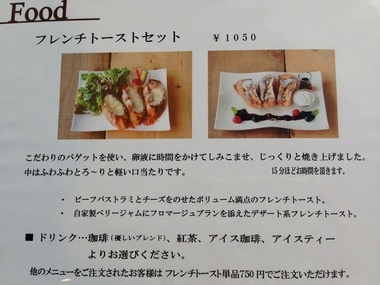 Food
フレンチトーストセット ￥1050
こだわりのバゲットを使い、卵液に時間をかけてしみこませ、じっくりと焼き上げました。
中はふわふわとろ～りと軽い口当たりです。 15分ほどお時間を頂きます。
・ ビーフパストラミとチーズをのせたボリューム満点のフレンチトースト。
・ 自家製ベリージャムにフロマージュブランを添えたデザート系フレンチトースト。
■ ドリンク…珈琲（優しいブレンド）、紅茶、アイス珈琲、アイスティー
よりお選びください。
他のメニューをご注文されたお客様は フレンチトースト単品750円でご注文いただけます。